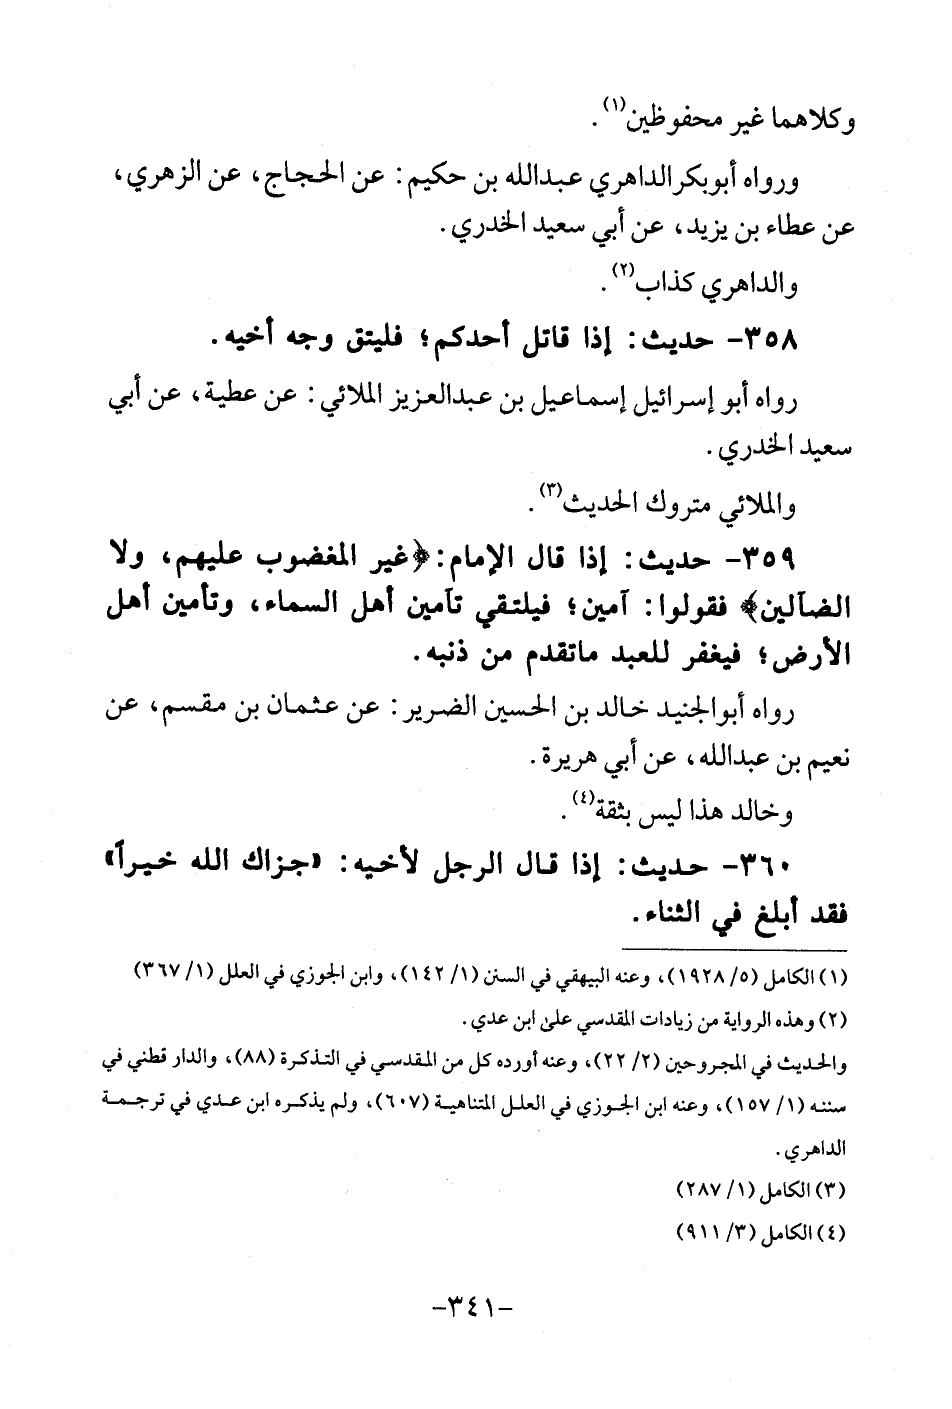 وكلاهما غير محفوظين(١).
ورواه أبوبكرالداهري عبدالله بن حكيم: عن الحجاج، عن الزهري،
عن عطاء بن يزيد، عن أبي سعيد الخدري.
والداهري كذاب(٢).
٣٥٨- حديث: إذا قاتل أحدكم؛ فليتق وجه أخيه.
رواه أبو إسرائيل إسماعيل بن عبدالعزيز الملائي: عن عطية، عن أبي
سعيد الخدري.
والملائي متروك الحديث(٣).
٣٥٩- حديث: إذا قال الإمام:﴿غير المغضوب عليهم، ولا
الضآلين﴾ فقولوا: آمين؛ فيلتقي تآمين أهل السماء، وتأمين أهل
الأرض؛ فيغفر للعبد ماتقدم من ذنبه.
رواه أبوالجنيد خالد بن الحسين الضرير: عن عثمان بن مقسم، عن
نعيم بن عبدالله، عن أبي هريرة.
وخالد هذا ليس بثقة(٤).
٣٦٠- حديث: إذا قال الرجل لأخيه: «جزاك الله خيراً»
فقد أبلغ في الثناء.
(١) الكامل (٥/ ١٩٢٨)، وعنه البيهقي في السنن (١/ ١٤٢)، وابن الجوزي في العلل (١/ ٣٦٧)
(٢) وهذه الرواية من زيادات المقدسي على ابن عدي.
والحديث في المجروحين (٢/ ٢٢)، وعنه أورده كل من المقدسي في التذكرة (٨٨)، والدار قطني في
سننه (١/ ١٥٧)، وعنه ابن الجوزي في العلل المتناهية (٦٠٧)، ولم يذكره ابن عدي في ترجمة
الداهري.
(٣) الكامل (١/ ٢٨٧)
(٤) الكامل (٣/ ٩١١)
-٣٤١-